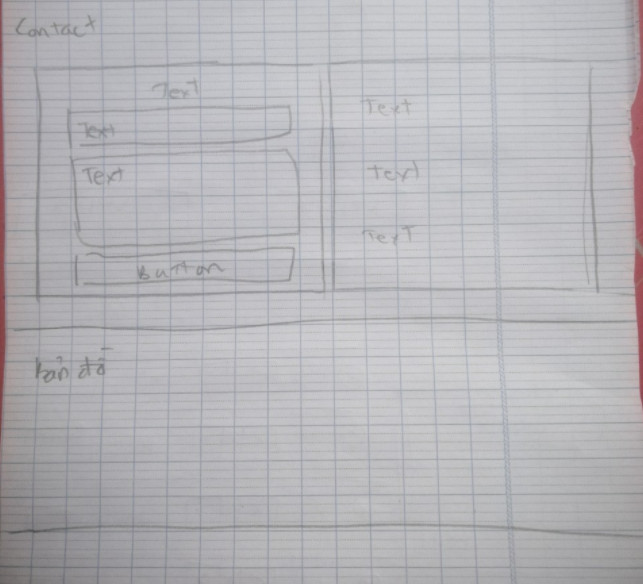 Contact
Text
Text
Text
Button
Text
Text
Text
bản đồ